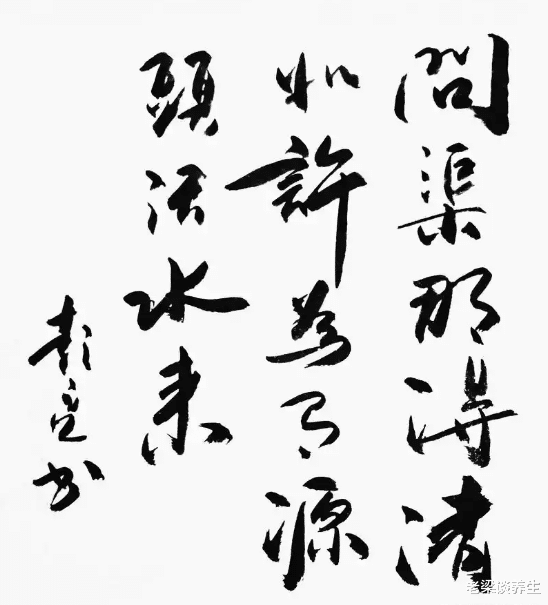 問渠那得清
如許為有源
頭活水來
彭立书
老梁谈养生